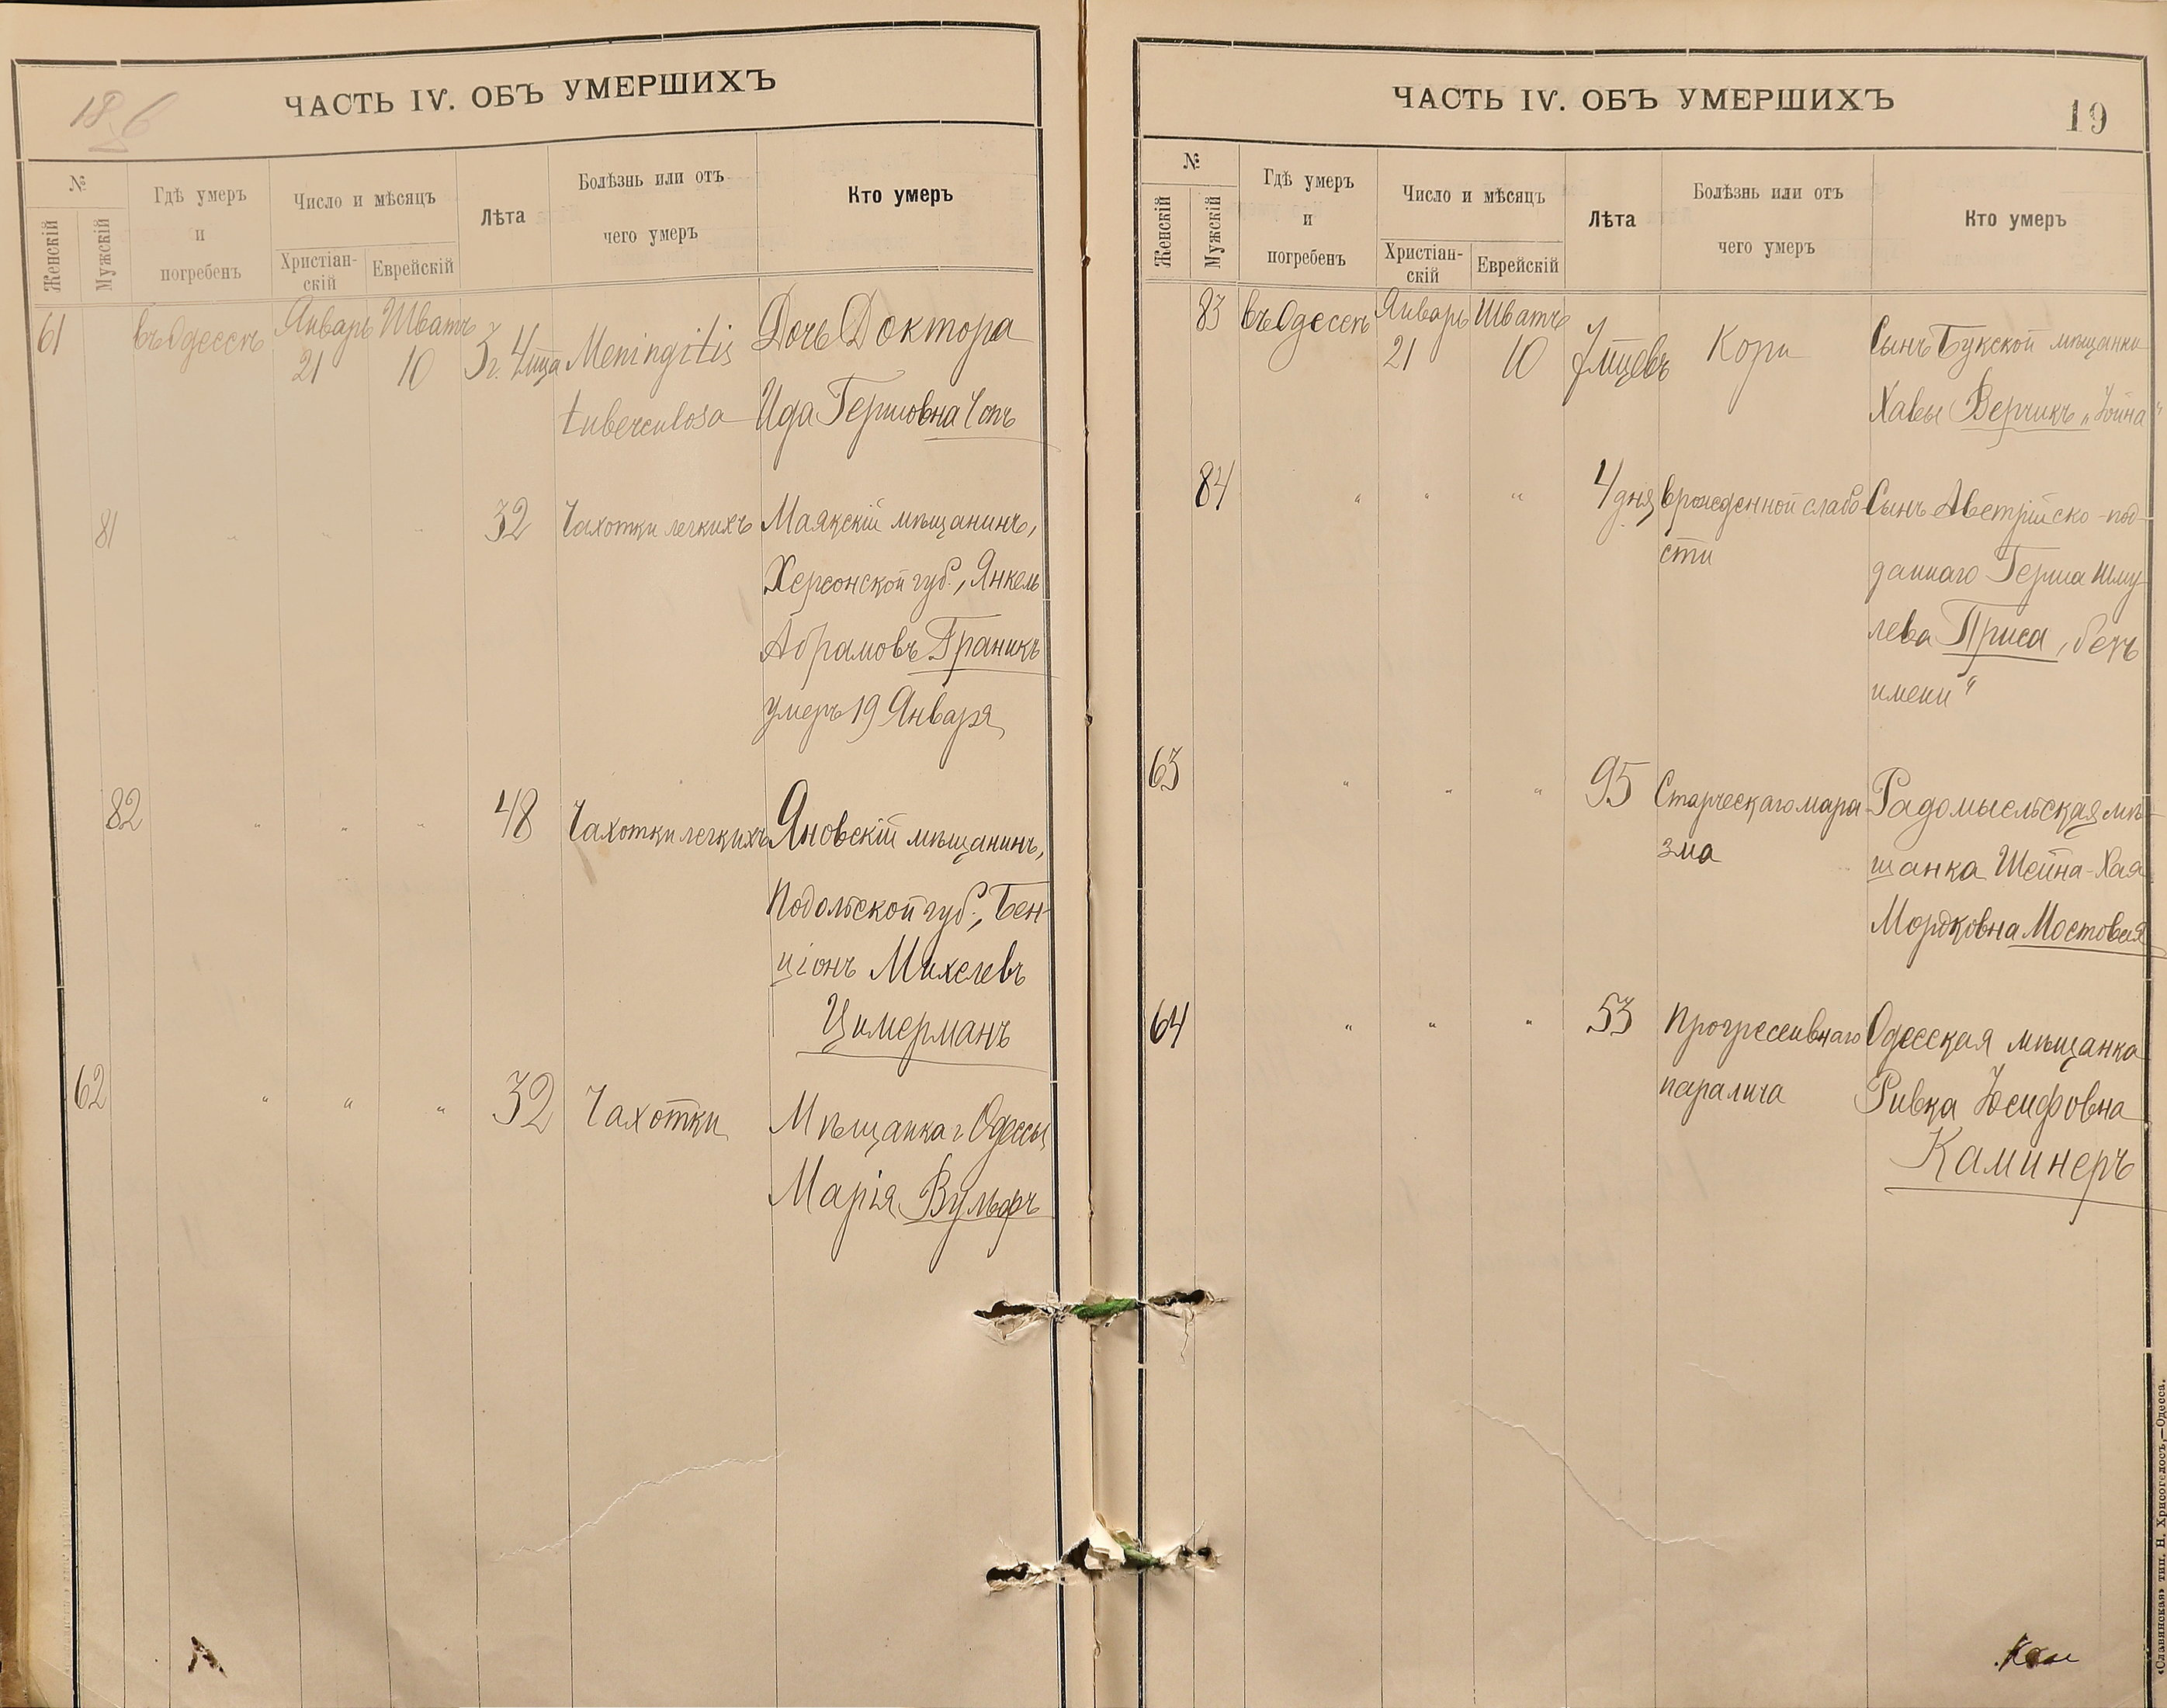 ЧАСТЬ IV. ОБЪ УМЕРШИХЪ
№
Женскій
Мужскій
Гдѣ умеръ
и
погребенъ
Число и мѣсяцъ
Христіан-
скій
Еврейскій
Лѣта
Болѣзнь или отъ
чего умеръ
Кто умеръ
61 въ Одессѣ Январь 21 Шватъ 10 3 г. 4 мца Meningitis Дочь Доктора
tuberculosa Ида Гершовна
81 " " " 32 Чахотки легкихъ Маякскій мѣщанинъ,
Херсонской губ., Янкель
Абрамовъ Граникъ
умеръ 19 Января
82 " " " 48 Чахотки легкихъ Яновскій мѣщанинъ,
Подольской губ., Бен-
ціонъ Михелевъ
Цимерманъ
62 " " " 32 Чахотки Мѣщанка г. Одессы
Марія Вульфъ
ЧАСТЬ IV. ОБЪ УМЕРШИХЪ
19
№
Женскій
Мужскій
Гдѣ умеръ
и
погребенъ
Число и мѣсяцъ
Христіан-
скій
Еврейскій
Лѣта
Болѣзнь или отъ
чего умеръ
Кто умеръ
83 въ Одессѣ Январь 21 Шватъ 10 мцевъ Кори Сынъ Букской мѣщанки
Хавы Верчикъ
84 " " " 4 дня врожденной слабо- Сынъ Австрійско-под-
сти даннаго Герша Шму-
лева Приса, безъ
имени"
63 " " " 95 Старческаго мара- Радомысльская мѣ-
зма щанка Шейна-Хая
Мордковна Мостовая
64 " " " 53 Прогрессивнаго Одесская мѣщанка
паралича Ривка Іосифовна
Каминеръ
«Славянская» тип. Н. Хрисогелосъ,—Одесса.